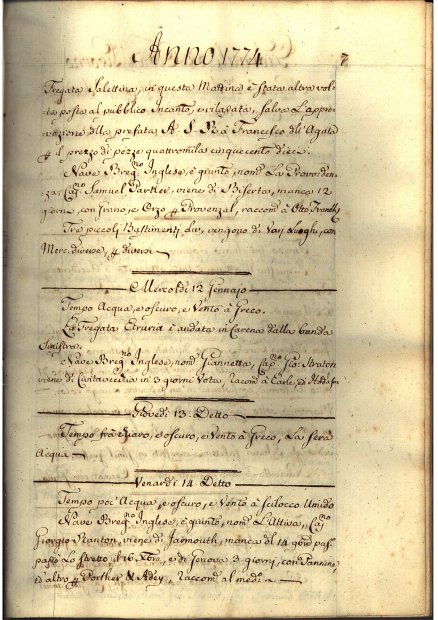 Anno 1774
7
Fregata Salettina, in questa Mattina è stata altra vol
ta posta al pubblico Incanto, e rilasata, salva L'appro
vazione della prefata A. S. R. à Francesco dell'Agata
il prezzo di pezze quattromila cinquecento dieci.
Nave Breq.no Inglese, è giunto, nom.o La Providen
za, Cap.no Samuel Parther, viene di Biserta, manca 12
giorni, con Grano, e Orzo Provenzal, raccom.o à Otto Franchi
Tre piccoli Bastimenti div. vengono di Varj Luoghi, con
Merc. diverse, diversi
Mercoldi 12 Gennajo
Tempo Acqua, e oscuro, e Vento à Greco.
La Fregata Etruria è andata in Carena dalla banda
Sinistra.
Nave Breq.no Inglese, nom.o Giannetta, Cap.no Gio: Straton
viene di Civitavecchia in 3 giorni Vota, racom.o à Earle, ed
Giovedi 13. Detto
Tempo frà chiaro, e oscuro, e Vento à Greco, La sera
Acqua
Venardi 14. Detto
Tempo poc'Acqua, e oscuro, e Vento à Scilocco Umido
Nave Breq.no Inglese, è giunto, nom.o L'Attiva, Cap.no
Giorgio Stanton, viene di Jarmouth, manca dal 14
passò Lo Stretto il 16 Xbre, e di Genova 3 giorni, con
ed altro Porther & Adey, Raccom.o al med.o